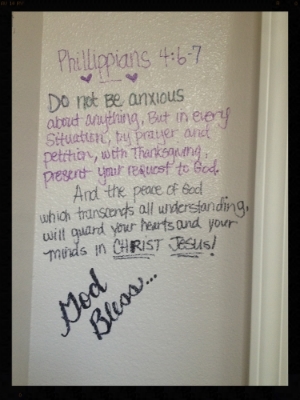 Phillippians 4:6-7
Do not Be anxious
about anything, But in every
situation, by prayer and
petition, with Thanksgiving,
present your request to God.
And the peace of God
which transcends all understanding,
will guard your hearts and your
minds in CHRIST JESUS!
God
Bless...